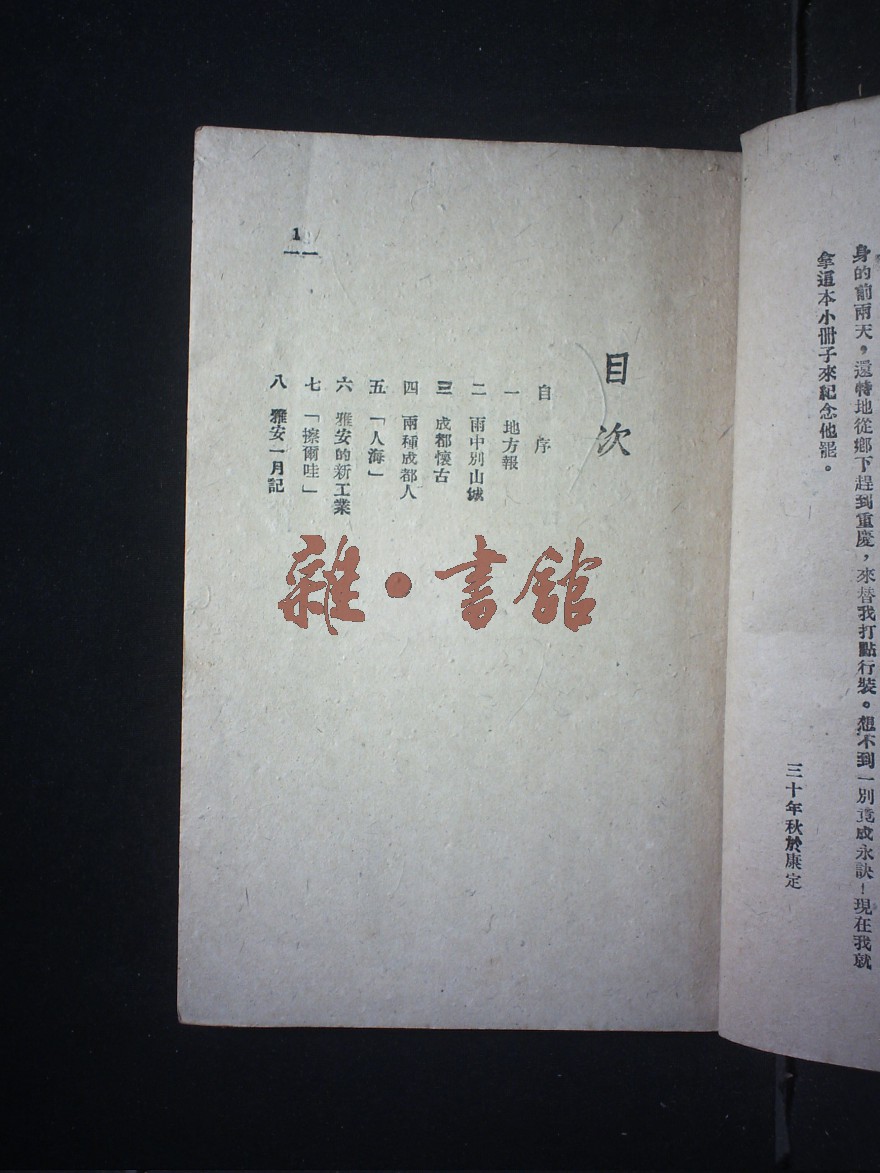 身的前兩天，還特地從鄉下趕到重慶，來替我打點行裝。想不到一別竟成永訣！現在我就
拿這本小冊子來紀念他罷。
三十年秋於康定
目次
自序
一 地方報
二 雨中別山城
三 成都懷古
四 兩種成都人
五 「人海」
六 雅安的新工業
七 「擦爾哇」
八 雅安一月記
1
雜·書館